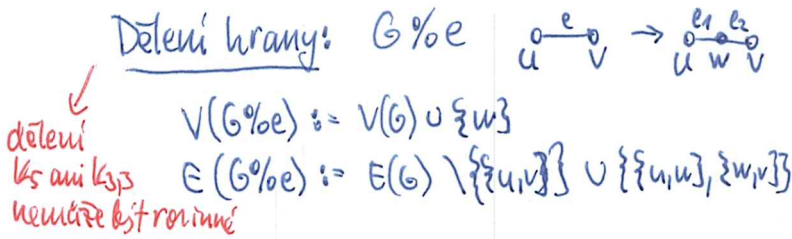 Dělení hrany: G%e
e
u v
→
e1 e2
u w v
V(G%e) := V(G) ∪ {w}
E(G%e) := E(G) \ {{u,v}} ∪ {{u,w},{w,v}}
dělení
K5 ani K3,3
nemůže být rovinné